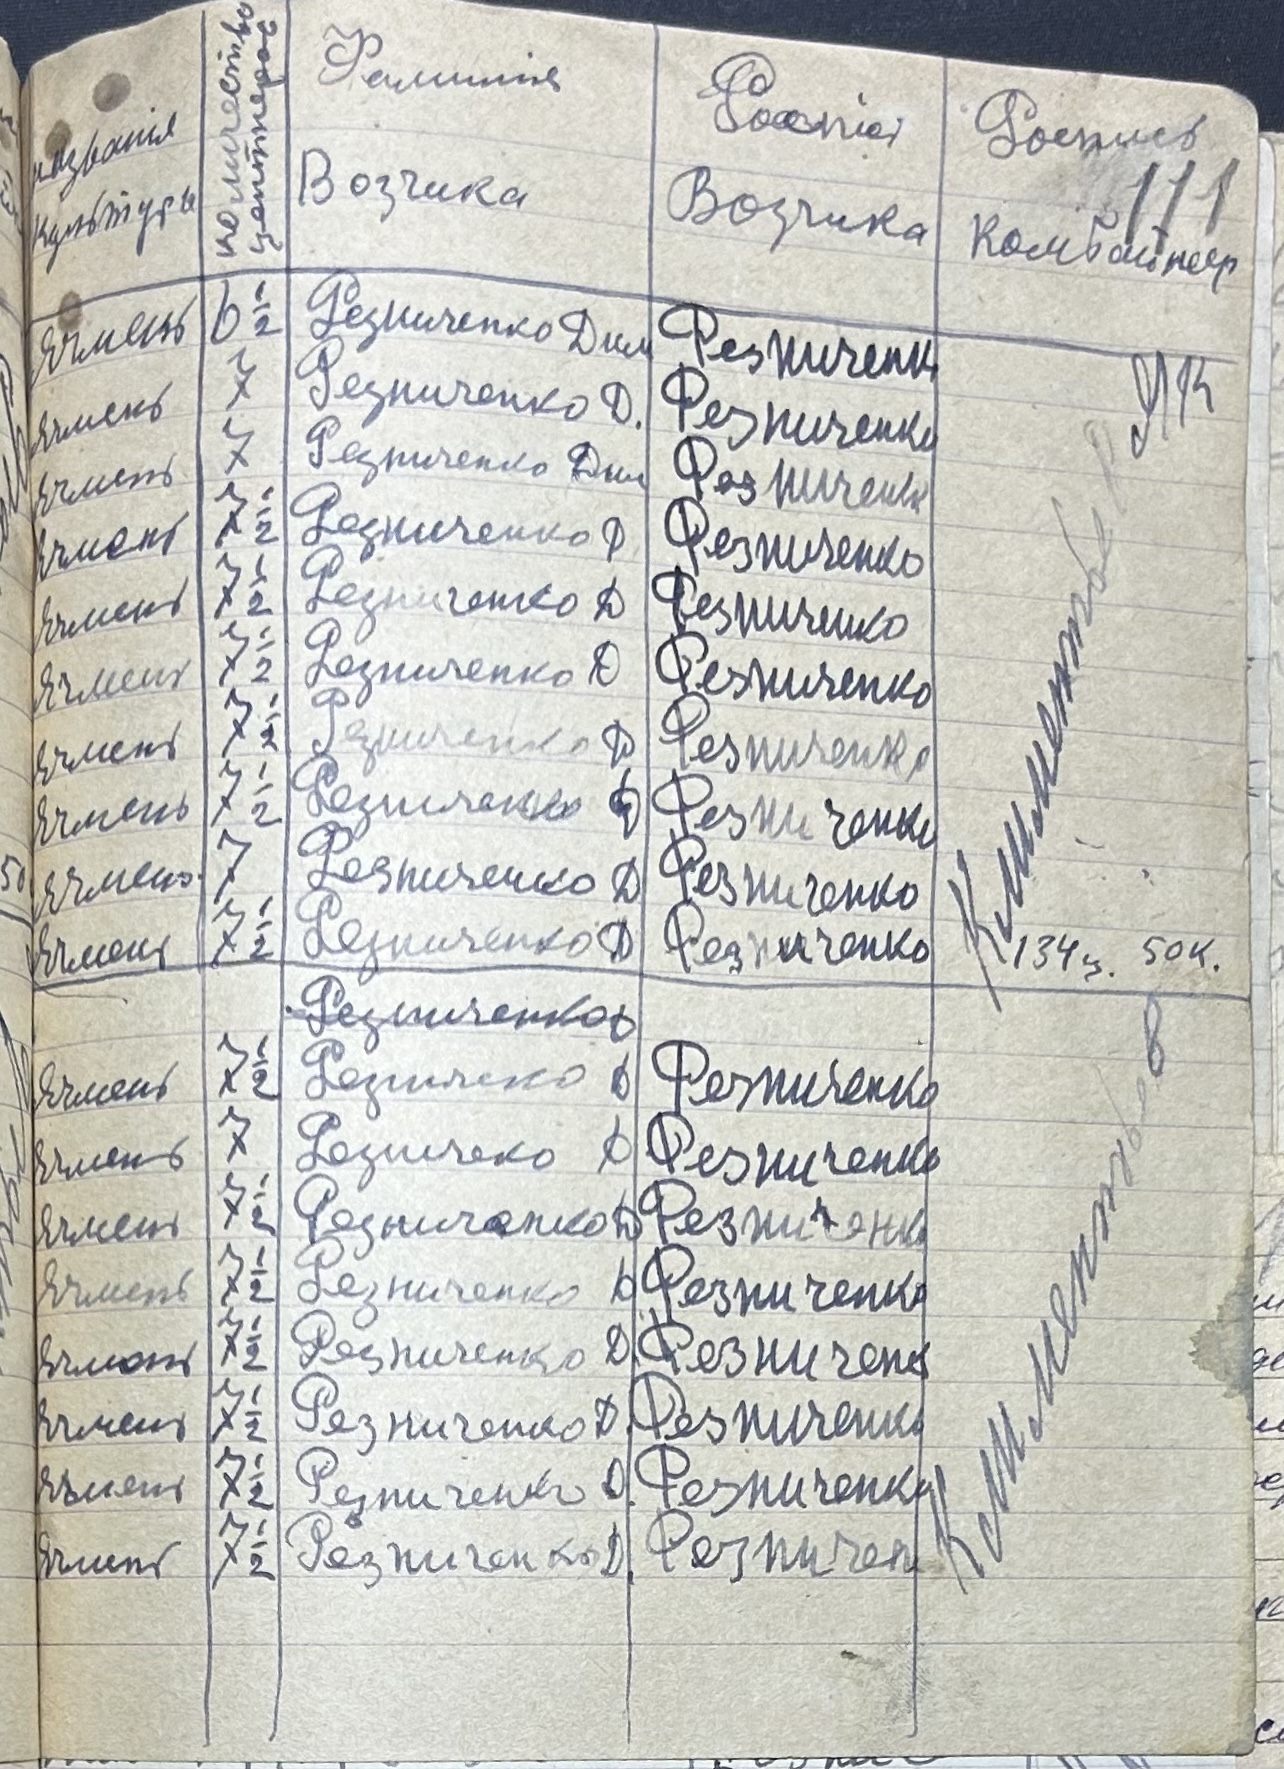 названія культуры количество центнеров Фамилія Возчика Роспись Возчика Роспись Комбайнер
111
Ячмень 6 1/2 Резниченко Дим Резниченк
Ячмень 7 Резниченко Д. Резниченко
Ячмень 7 Резниченко Дим Резниченк
Ячмень 7 1/2 Резниченко Д Резниченко
Ячмень 7 1/2 Резниченко Д Резниченко
Ячмень 7 1/2 Резниченко Д Резниченко
Ячмень 7 1/2 Резниченко Д Резниченко
Ячмень 7 1/2 Резниченко Д Резниченко
Ячмень 7 Резниченко Д Резниченко
Ячмень 7 1/2 Резниченко Д Резниченко
Климентьев
134ц. 50к.
Резниченко
Ячмень 7 1/2 Резничеко Д Резниченко
Ячмень 7 Резничеко Д Резниченко
Ячмень 7 1/2 Резниченко Д Резниченк
Ячмень 7 1/2 Резниченко Д Резниченко
Ячмень 7 1/2 Резниченко Д Резниченк
Ячмень 7 1/2 Резниченко Д. Резниченко
Ячмень 7 1/2 Резниченко Д. Резниченко
Ячмень 7 1/2 Резниченко Д. Резничен
Климентьев